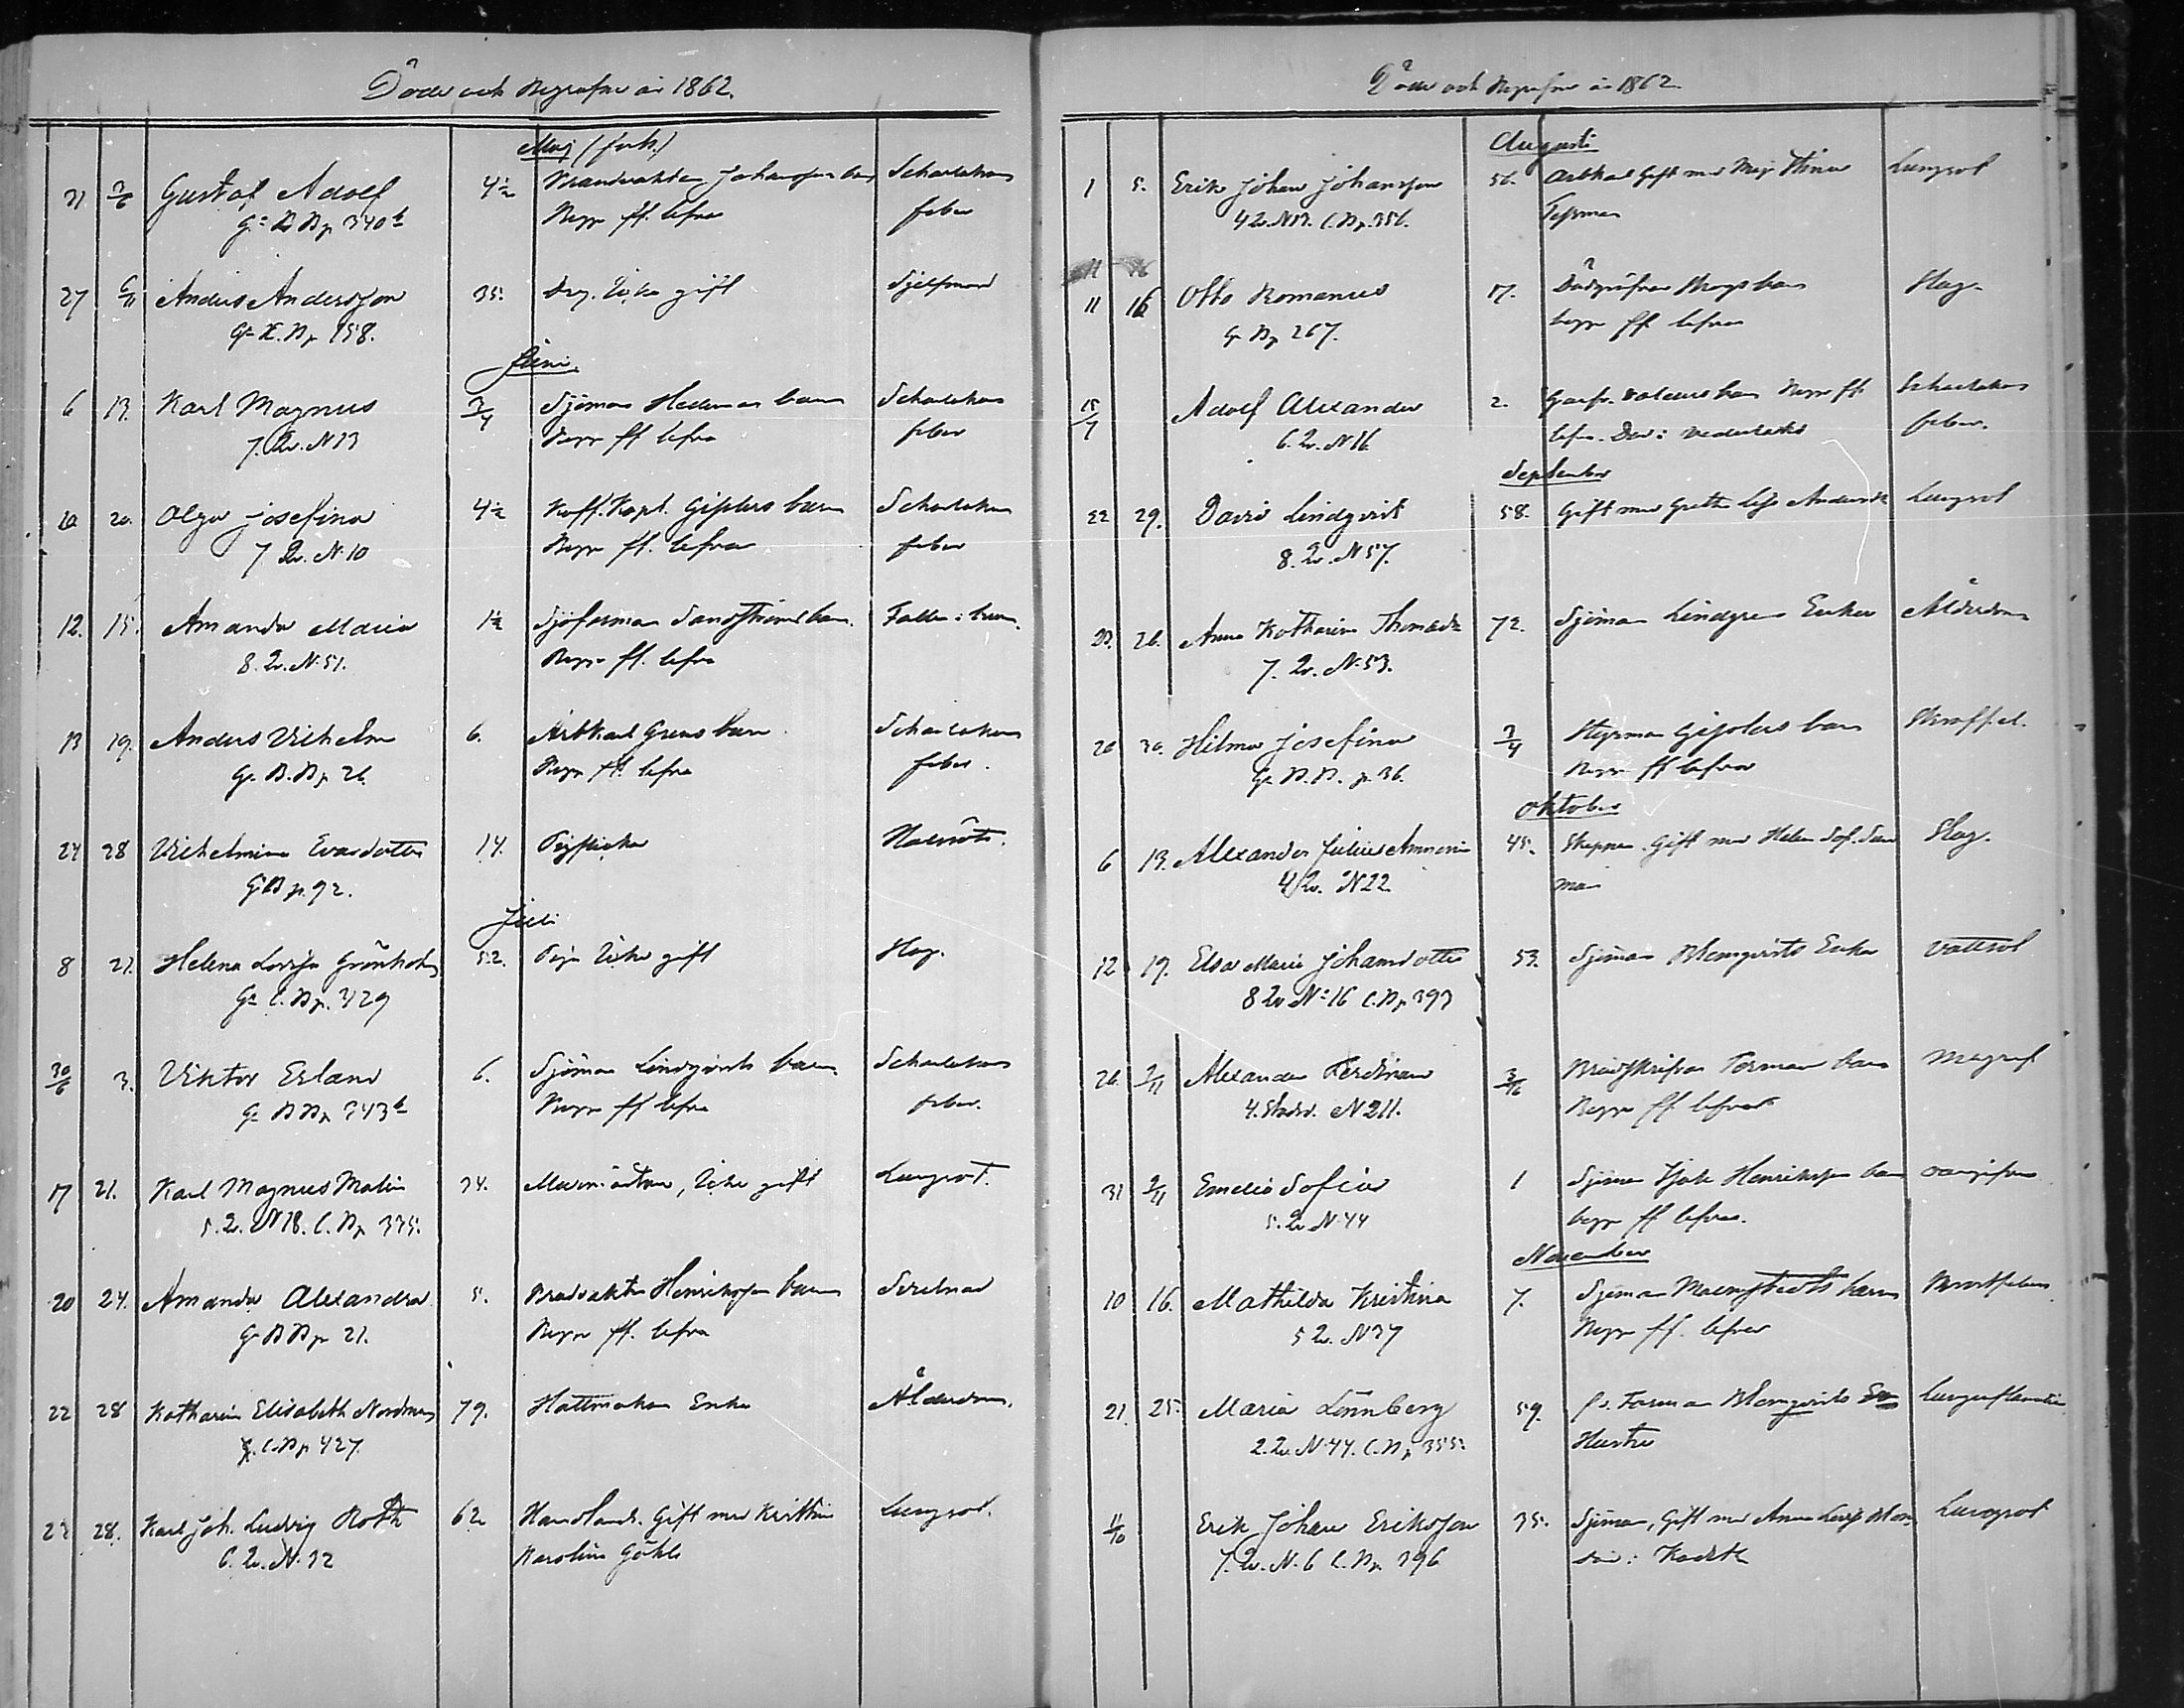 Döde och Begrafne år 1862.
Maj (forts.)
31 2/6 Gustaf Adolf 4½ Brandvakten Johanssons barn Scharlakans
G: B Bp 340 b Begr ff. lefva feber
27 6/11 Anders Andersson 35. Drg. Icke gift Sjelfmord
Ga K. Bp 158.
Juni.
6 13. Karl Magnus 3/4 Sjöman Hedmans barn Scharlakans
7. Qv. N 13 Begr ff lefva feber
10 20. Olga Josefina 4½ Koff. Kapt. Gisslers barn Scharlakans
7 Qv. N. 10 Begr ff. lefva feber
12. 15. Amanda Maria 1½ barn.
8. Qv. N. 51. Begr ff. lefva
13 19. Anders Vilhelm 6. Arbkarl Grens barn Scharlakans
Ga B. Bp 26. Begr ff. lefva feber.
24 28 Vilhelmina Evasdotter 14. Pigflicka
G B p. 92.
Juli
8 21. Helena Lovisa Grönholm 52. Piga Icke gift Slag.
Ga C. Bp. 329
30/6 3. Viktor Erland 6. Sjöman Lindqvists barn. Scharlakans
Ga B Bp 343 b Begr ff lefva feber.
17 21. Karl Magnus Malin 34. Icke gift Lungsot.
5. Qv. N 18. C. Bp 335.
20 24. Amanda Alexandra 5. Bradvakten Henrikssons barn
Ga B Bp 21. Begr ff. lefva
22 28 Katharina Elisabeth Nordman 79. Hattmakare Enka Ålderdom.
C. Bp 427.
22 28. Karl Joh. Ludvig Roth 62 Handland. Gift med Kristina Lungsot.
6. Qv. N. 32 Karolina
Döde och Begrafne år 1862.
Augusti
1 5. Erik Johan Johansson 56. Arbkarl Gift med Maj Stina Lungsot
4 Qv. N 13. C. Bp. 356.
11 16
11 16 Otto Romanus 17. barn Slag.
Ga Bp 267. begr ff. lefva
15/7 Adolf Alexander 2. barn Begr ff. Scharlakans
6. Qv. N 16. lefva. feber.
September
22 29. David Lindqvist 58. Gift med Greta Lisa Andersdr Lungsot
8. Qv. N 57.
23. 26. Anna Katharina Thomasdr 72. Sjöman Lindgrens Enka Ålderdom
7. Qv. N. 53.
26 30. Hilma Josefina 3/4 Styrman Gisslers barn
Ga B. B. p. 36. Begr ff lefva
Oktober
6 13. Alexander Julius Ammorin 45. Skeppare. Gift med Helena Sof. Sand Slag.
4 Qv. N 22. man
12 19. Elsa Maria Johansdotter 53. Sjöman Blomqvists Enka Vattsot
8 Qv N: 16 C. Bp 393
26. 2/11 Alexander Ferdinand 3/16 barn
4. Stadsd. N 211. Begr ff. lefva
31 2/11 Emelia Sofia 1 Sjöman Isak Henrikssons barn
5. Qv N. 44 begr ff lefva.
November
10 16. Mathilda Kristina 7. Sjöman Malmstedts barn
5 Qv. N 37 Begr ff. lefva
21. 25. Maria Lönnberg 59. f.d. Farman Blomqvists
2. Qv. N. 44. C. Bp 355. Hustru
11/10 Erik Johan Eriksson 35. Sjöman, Gift med Anna Lovisa Lungsot
7. Qv. N. 6 C. Bp. 396